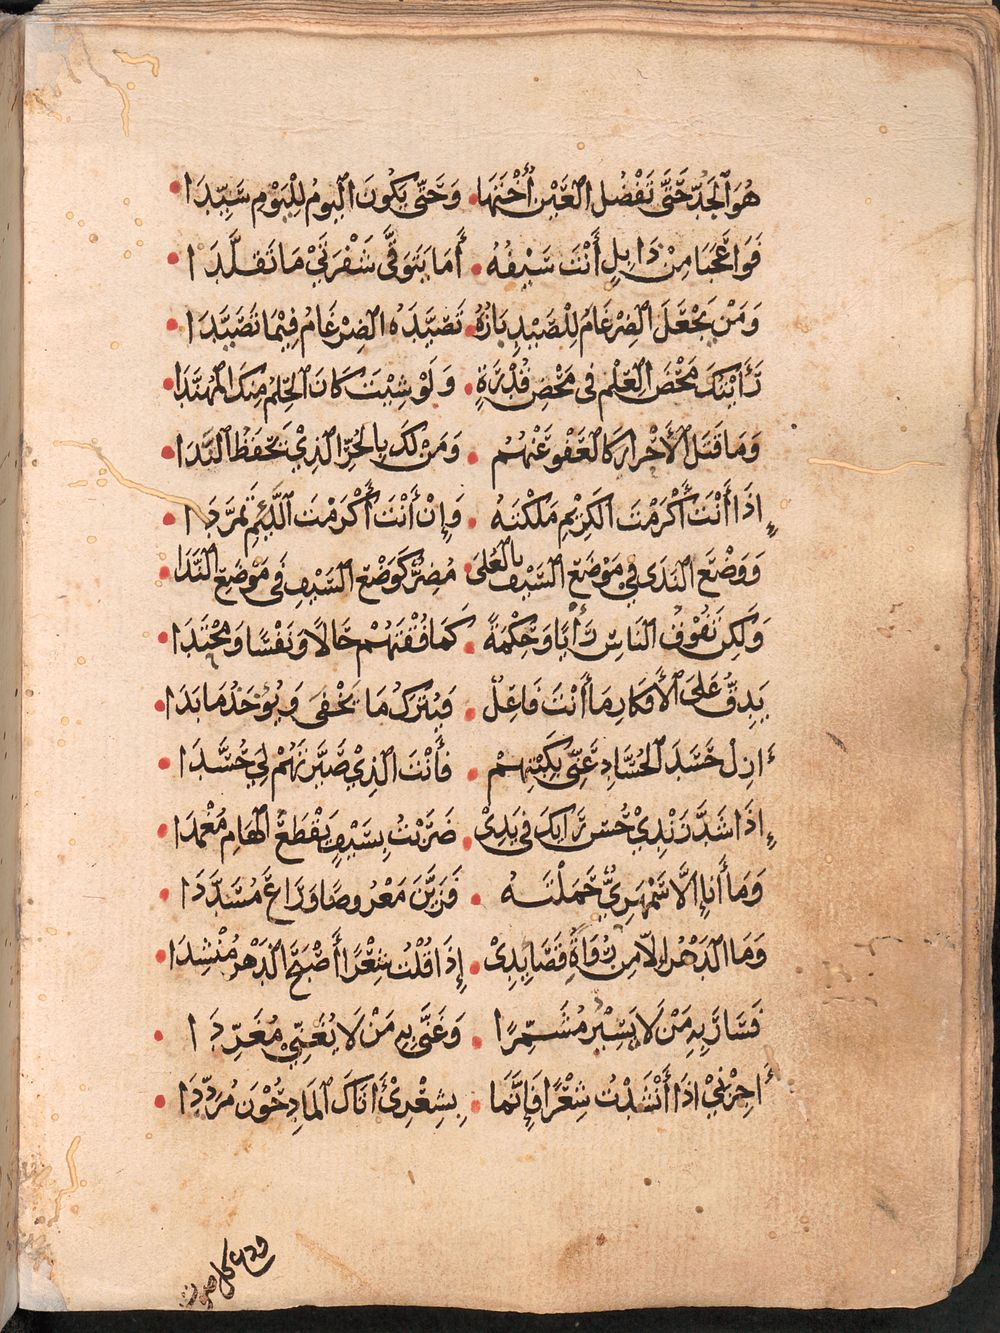 هُوَ الْجَدُّ حَتَّى تَفْضُلَ الْعَيْنُ أُخْتَهَا • وَحَتَّى يَكُونَ الْيَوْمُ لِلْيَوْمِ سَيِّدَا
فَوَا عَجَبَا مِنْ دَايِلٍ أَنْتَ سَيْفُهُ • أَمَا يَتَوَقَّى شَفْرَتَيْ مَا تَقَلَّدَا
وَمَنْ يَجْعَلِ الضِّرْغَامَ لِلصَّيْدِ بَازَهُ • تَصَيَّدَهُ الضِّرْغَامُ فِيْمَا تَصَيَّدَا
رَأَيْتُكَ مَحْضَ الْحِلْمِ فِي مَحْضِ قُدْرَةٍ • وَلَوْ شِيْتَ كَانَ الْحِلْمُ مِنْكَ الْمُهَنَّدَا
وَمَا قَتَلَ الْأَحْرَارَ كَالْعَفْوِ عَنْهُمْ • وَمَنْ لَكَ بِالْحُرِّ الَّذِيْ يَحْفَظُ الْيَدَا
إِذَا أَنْتَ أَكْرَمْتَ الْكَرِيْمَ مَلَكْتَهُ • وَإِنْ أَنْتَ أَكْرَمْتَ اللَّئِيْمَ تَمَرَّدَا
وَوَضْعُ النَّدَى فِي مَوْضِعِ السَّيْفِ بِالْعُلَى • مُضِرٌّ كَوَضْعِ السَّيْفِ فِي مَوْضِعِ النَّدَا
وَلَكِنْ تَفُوْقُ النَّاسَ رَأْيًا وَحِكْمَةً • كَمَا فُقْتَهُمْ حَالًا وَنَفْسًا وَمَحْتِدَا
يَدِقُّ عَلَى الْأَفْكَارِ مَا أَنْتَ فَاعِلٌ • فَيُتْرَكُ مَا يَخْفَى وَيُؤْخَذُ مَا بَدَا
أَزِلْ حَسَدَ الْحُسَّادِ عَنِّي بِكَبْتِهِمْ • فَأَنْتَ الَّذِيْ صَيَّرْتَهُمْ لِيَ حُسَّدَا
إِذَا شَدَّ زَنْدِيْ حُسْنُ رَايِكَ فِي يَدِيْ • ضَرَبْتُ بِسَيْفٍ يَقْطَعُ الْهَامَ مُغْمَدَا
وَمَا أَنَا إِلَّا سَمْهَرِيٌّ حَمَلْتَهُ • فَزَيَّنَ مَعْرُوضًا وَرَاعَ مُسَدَّدَا
وَمَا الدَّهْرُ إِلَّا مِنْ رُوَاةِ قَصَايِدِيْ • إِذَا قُلْتُ شِعْرًا أَصْبَحَ الدَّهْرُ مُنْشِدَا
فَسَارَ بِهِ مَنْ لَا يَسِيْرُ مُشَمِّرًا • وَغَنَّى بِهِ مَنْ لَا يُغَنِّيْ مُغَرِّدَا
أَجِزْنِيْ إِذَا أُنْشِدْتَ شِعْرًا فَإِنَّمَا • بِشِعْرِيْ أَتَاكَ الْمَادِحُوْنَ مُرَدَّدَا